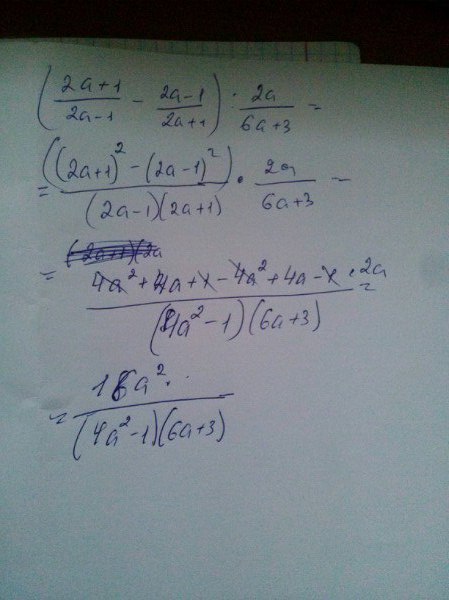 ( (2a+1)/(2a-1) - (2a-1)/(2a+1) ) · 2a/(6a+3) =
= ((2a+1)² - (2a-1)²)/((2a-1)(2a+1)) · 2a/(6a+3) =
= (4a² + 4a + 1 - 4a² + 4a - 1 · 2a)/((4a² - 1)(6a+3)) =
= 16a²/((4a² - 1)(6a+3))